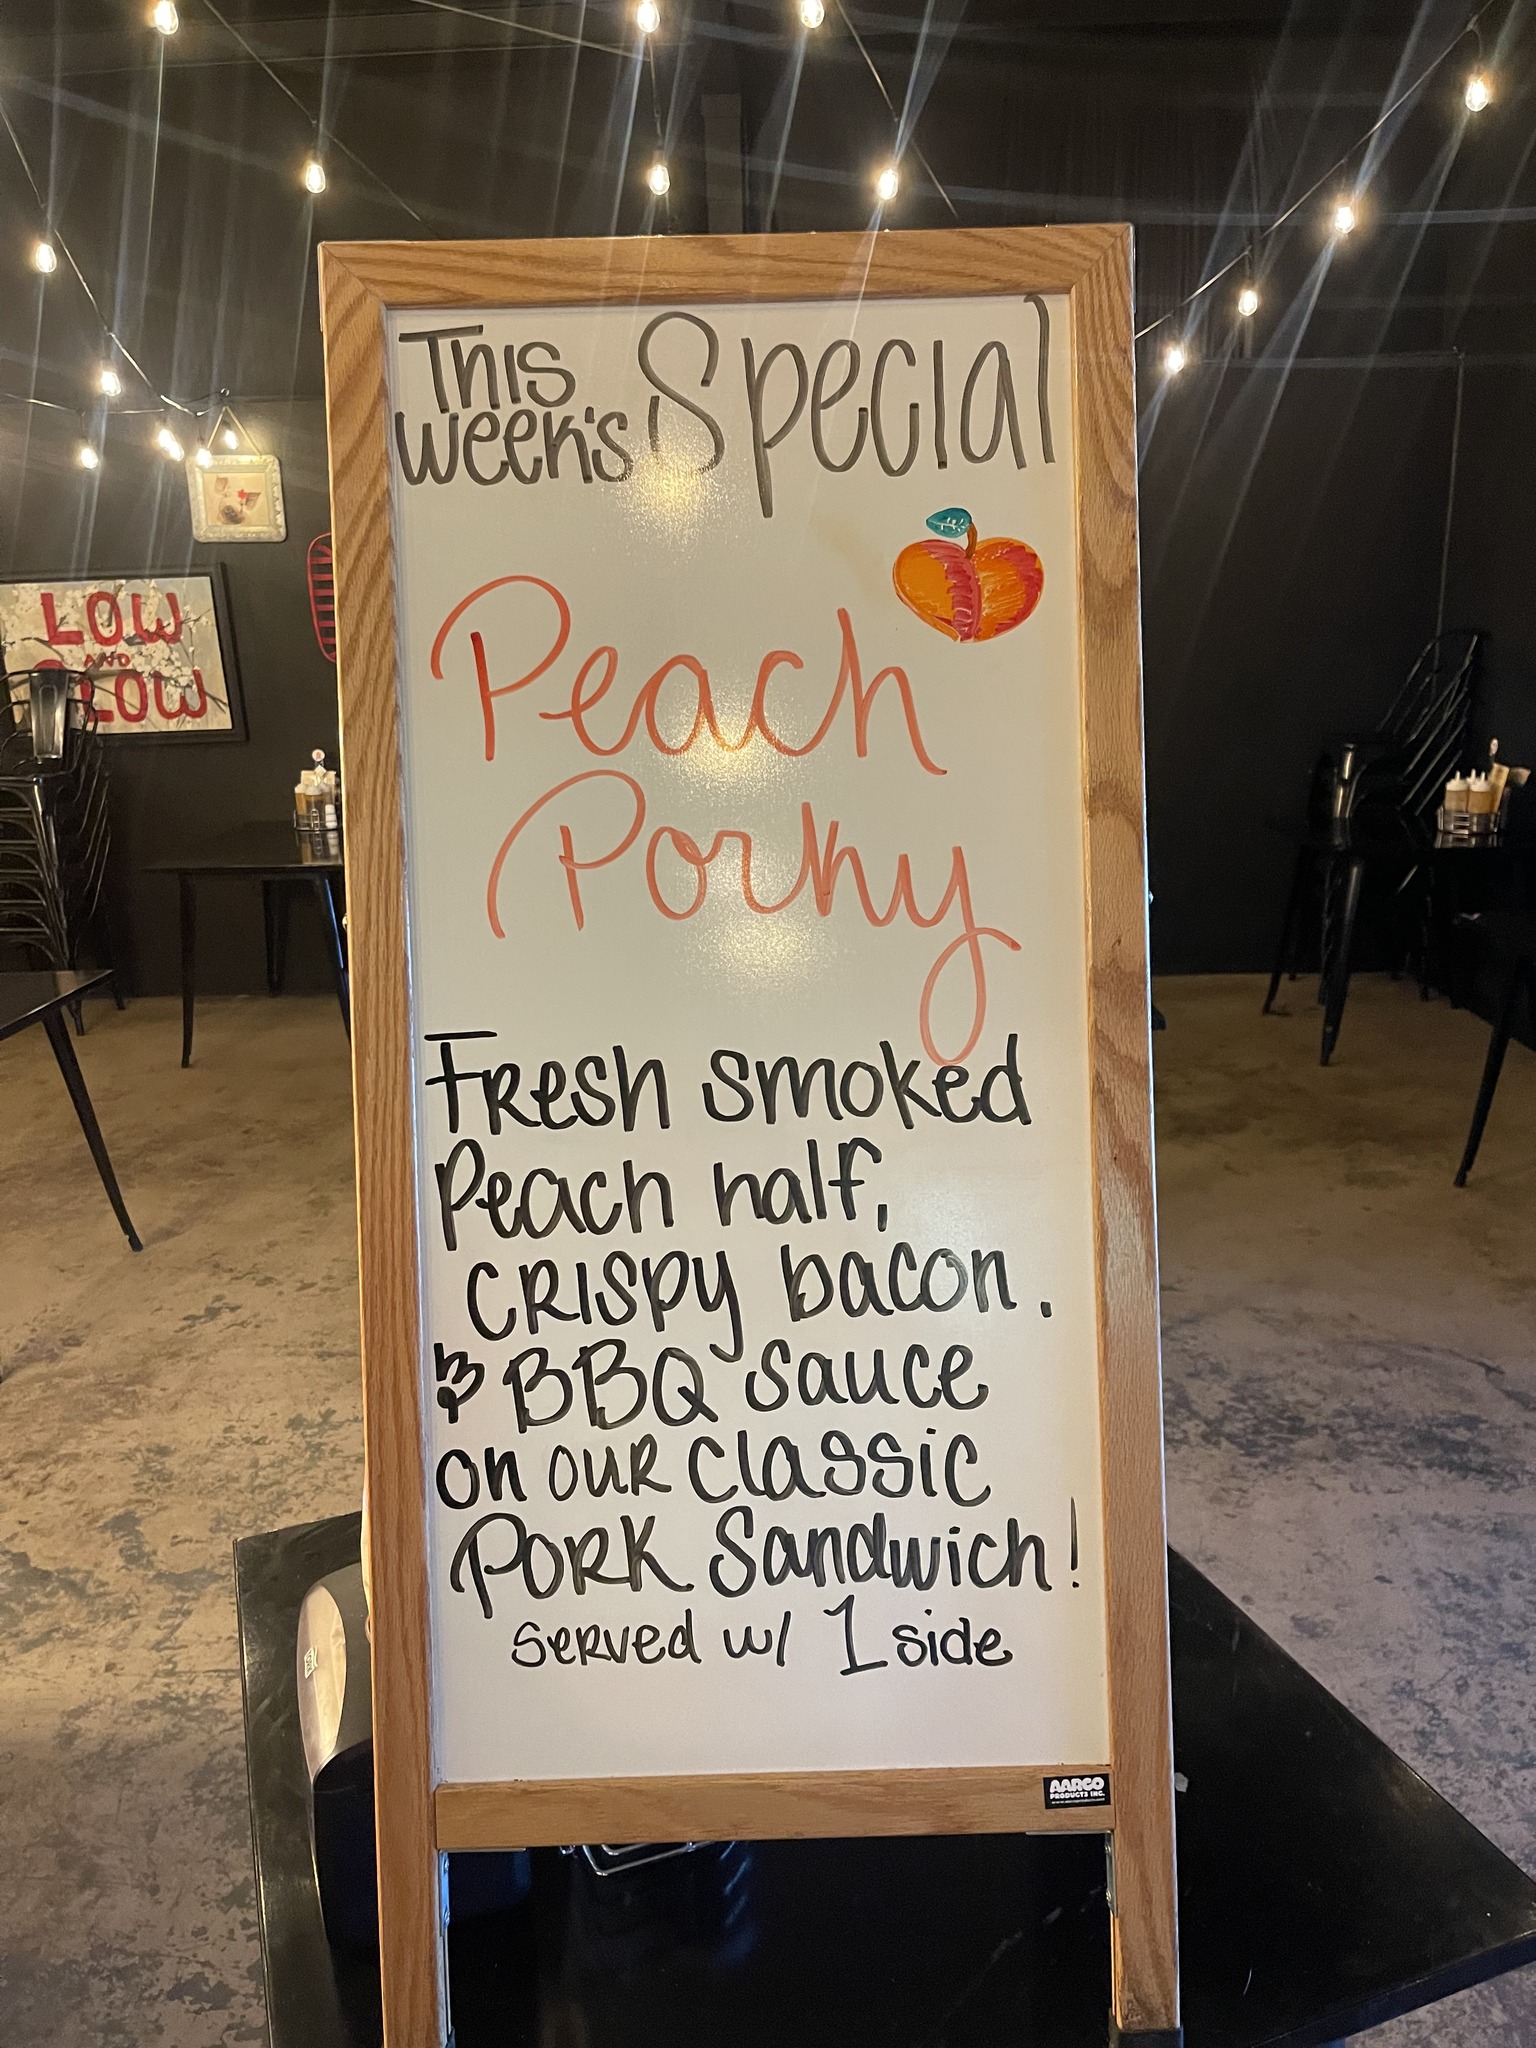 This
week's Special
Peach
Porky
Fresh smoked
Peach half,
crispy bacon.
& BBQ sauce
on our classic
Pork Sandwich!
served w/ 1 side
LOW
AND
SLOW
AARCO
PRODUCTS INC.